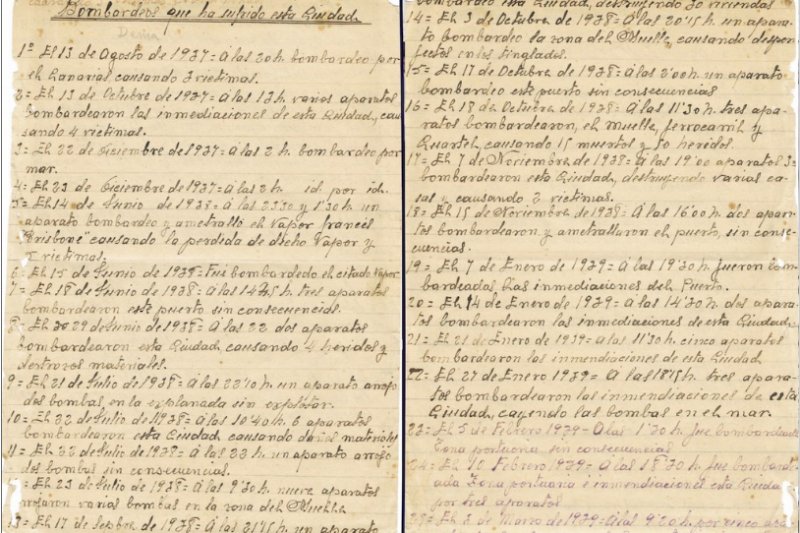 Bombardeos que ha sufrido esta Ciudad
Denia
1º El 13 de Agosto de 1937= A las 20 h. bombardeo por
el Canarias causando 3 victimas.
2= El 13 de Octubre de 1937= A las 12 h. varios aparatos
bombardearon las inmediaciones de esta Ciudad, cau
sando 4 victimas.
3= El 22 de Diciembre de 1937= A las 2 h. bombardeo por
mar.
4= El 23 de Diciembre de 1937= A las 2 h. id. por id.
5= El 14 de Junio de 1938= A las 23'30 y 1'30 h. un
aparato bombardeo y ametralló el Vapor francés
Brisbone causando la perdida de dicho Vapor y
victimas.
6= El 15 de Junio de 1938= Fué bombardedo el citado Vapor
7= El 18 de Junio de 1938= A las 14'45 h. tres aparatos
bombardearon este puerto sin consecuencias.
8= El 29 Junio de 1938= A las 22 dos aparatos
bombardearon esta Ciudad causando 4 heridos y
destrozos materiales.
9= El 21 de Julio de 1938= A las 22'10 h. un aparato arrojo
dos bombas, en la explanada sin explotar.
10= El 22 de Julio de 1938= A las 10'40 h. 6 aparatos
bombardearon esta Ciudad causando daños materiales
11= El 22 de Julio de 1938= A las 23 h. un aparato arrojo
dos bombas sin consecuencias.
12= El 23 de Julio de 1938= A las 9'30 h. nueve aparatos
arrojaron varias bombas en la zona del Muelle.
13= El 17 de Sepbre de 1938= A las 21'15 h. un aparato
bombardeo esta Ciudad, destruyendo 30 viviendas
14= El 3 de Octubre de 1938= A las 20'15 h. un apara-
to bombardeo la zona del Muelle, causando desper-
fectos en los tinglados.
15= El 17 de Octubre de 1938= A las 2'00 h. un aparato
bombardeo este puerto sin consecuencias
16= El 18 de Octubre de 1938= A las 11'30 h. tres apa-
ratos bombardearon, el muelle, ferrocarril y
Quartel, causando 15 muertos y 50 heridos.
17= El 7 de Noviembre de 1938= A las 19'00 aparatos 3=
bombardearon esta Ciudad, destruyendo varias ca-
sas y causando 2 victimas.
18= El 15 de Noviembre de 1938= A las 16'00 h. dos apara-
tos bombardearon y ametrallaron el puerto, sin conse-
cuencias.
19= El 7 de Enero de 1939= A las 19'30 h. fueron bom-
bardeadas las inmediaciones del Puerto.
20= El 14 de Enero de 1939= A las 14'30 h. dos apara-
tos bombardearon las inmediaciones de esta Ciudad.
21= El 21 de Enero de 1939= A las 11'30 h. cinco aparatos
bombardearon las inmendiaciones de esta Ciudad
22= El 27 de Enero 1939= A las 18'15 h. tres apara-
tos bombardearon las inmendiaciones de esta
Ciudad, cayendo las bombas en el mar.
23= El 5 de Febrero 1939- A las 1'30 h. fue bombardeada
Zona portuaria sin consecuencias
24= El 10 Febrero 1939= A las 18'30 h. fue bombarde-
ada Zona portuaria é inmendiaciones esta Ciudad
por tres aparatos
25= El 3 de Marzo de 1939= A las 9'20 h. por cinco apa-